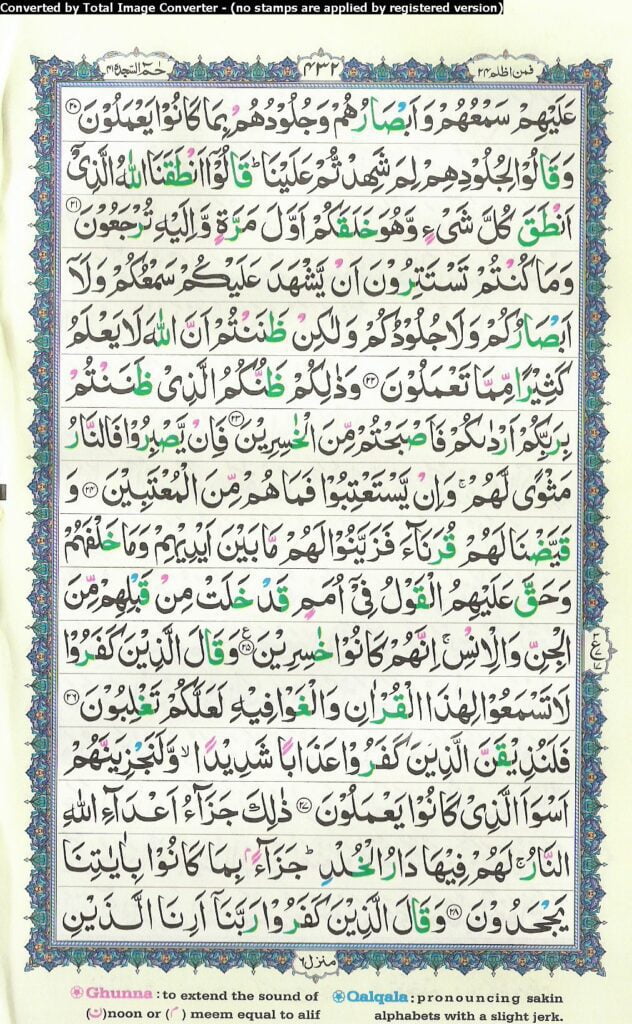 Converted by Total Image Converter - (no stamps are applied by registered version)
حٰمٓ السجدة ٤١
٤٣٢
فمن اظلم ٢٤
عَلَيْهِمْ سَمْعُهُمْ وَاَبْصَارُهُمْ وَجُلُوْدُهُمْ بِمَا كَانُوْا يَعْمَلُوْنَ ٢٠
وَقَالُوْا لِجُلُوْدِهِمْ لِمَ شَهِدْتُّمْ عَلَيْنَا ؕ قَالُوْۤا اَنْطَقَنَا اللّٰهُ الَّذِىْۤ
اَنْطَقَ كُلَّ شَىْءٍ وَّهُوَ خَلَقَكُمْ اَوَّلَ مَرَّةٍ وَّاِلَيْهِ تُرْجَعُوْنَ ٢١
وَمَا كُنْتُمْ تَسْتَتِرُوْنَ اَنْ يَّشْهَدَ عَلَيْكُمْ سَمْعُكُمْ وَلَاۤ
اَبْصَارُكُمْ وَلَا جُلُوْدُكُمْ وَلٰكِنْ ظَنَنْتُمْ اَنَّ اللّٰهَ لَا يَعْلَمُ
كَثِيْرًا مِّمَّا تَعْمَلُوْنَ ٢٢ وَذٰلِكُمْ ظَنُّكُمُ الَّذِىْ ظَنَنْتُمْ
بِرَبِّكُمْ اَرْدٰىكُمْ فَاَصْبَحْتُمْ مِّنَ الْخٰسِرِيْنَ ٢٣ فَاِنْ يَّصْبِرُوْا فَالنَّارُ
مَثْوًى لَّهُمْ ۚ وَاِنْ يَّسْتَعْتِبُوْا فَمَا هُمْ مِّنَ الْمُعْتَبِيْنَ ٢٤ وَ
قَيَّضْنَا لَهُمْ قُرَنَآءَ فَزَيَّنُوْا لَهُمْ مَّا بَيْنَ اَيْدِيْهِمْ وَمَا خَلْفَهُمْ
وَحَقَّ عَلَيْهِمُ الْقَوْلُ فِىْۤ اُمَمٍ قَدْ خَلَتْ مِنْ قَبْلِهِمْ مِّنَ
الْجِنِّ وَالْاِنْسِ ۚ اِنَّهُمْ كَانُوْا خٰسِرِيْنَ ٢٥ ع وَقَالَ الَّذِيْنَ كَفَرُوْا
لَا تَسْمَعُوْا لِهٰذَا الْقُرْاٰنِ وَالْغَوْا فِيْهِ لَعَلَّكُمْ تَغْلِبُوْنَ ٢٦
فَلَنُذِيْقَنَّ الَّذِيْنَ كَفَرُوْا عَذَابًا شَدِيْدًا ۙ وَّلَنَجْزِيَنَّهُمْ
اَسْوَاَ الَّذِىْ كَانُوْا يَعْمَلُوْنَ ٢٧ ذٰلِكَ جَزَآءُ اَعْدَآءِ اللّٰهِ
النَّارُ ۚ لَهُمْ فِيْهَا دَارُ الْخُلْدِ ؕ جَزَآءًۢ بِمَا كَانُوْا بِاٰيٰتِنَا
يَجْحَدُوْنَ ٢٨ وَقَالَ الَّذِيْنَ كَفَرُوْا رَبَّنَاۤ اَرِنَا الَّذَيْنِ
منزل ٦
Ghunna : to extend the sound of
(ن) noon or (م) meem equal to alif
Qalqala : pronouncing sakin
alphabets with a slight jerk.